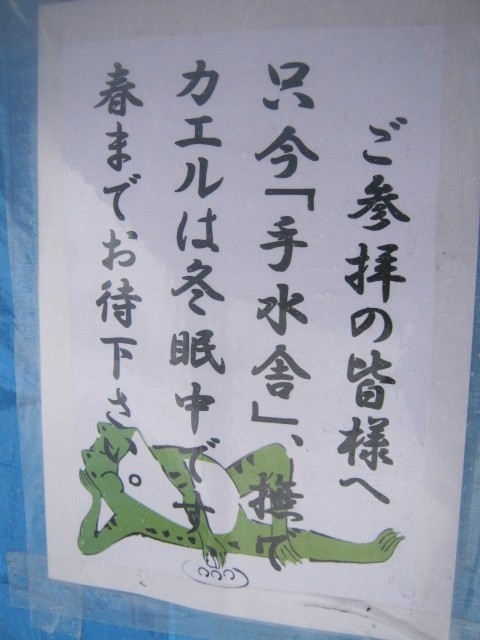 ご参拝の皆様へ
只今「手水舎」、撫で
カエルは冬眠中です
春までお待下さい。